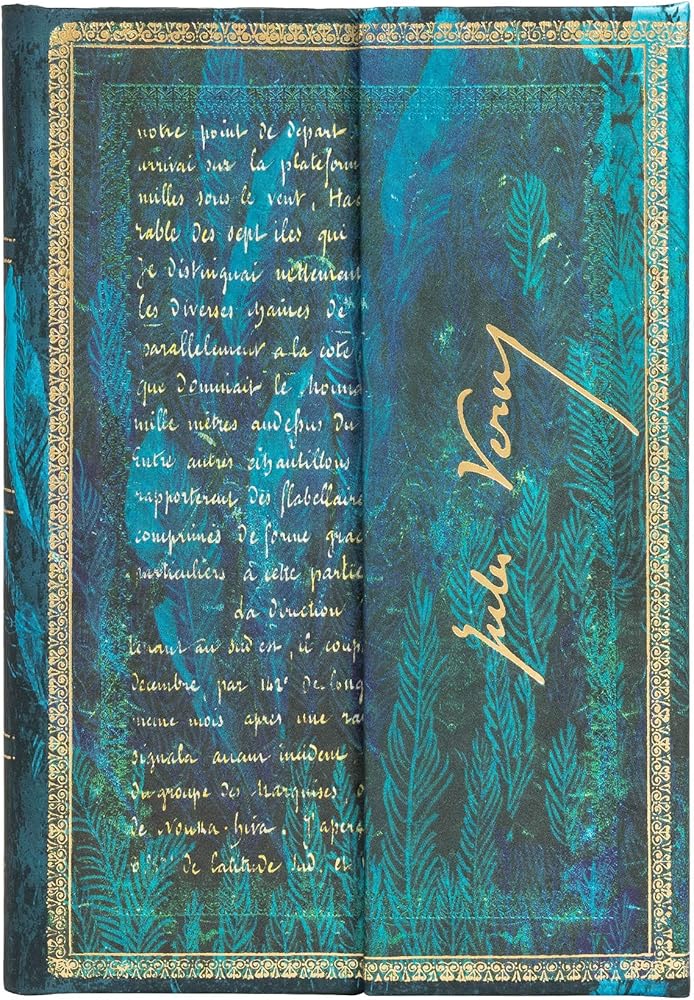 notre point de départ
arrivai sur la plateform
milles sous le vent, Haa
rable des sept iles qui
Je distinguai nettement
les diverses
parallelement a la cote
que dominait le mouna
mille mètres audessus du
Entre autres échantillons
rapporterent des flabellaire
comprimés de forme grac
particuliers à cette partie
La direction
tenant au sud est, il coup
décembre, par 142° de long
meme mois après une ra
signala aucun incident
du groupe des Marquises,
de Nouka-hiva. J'aper
de latitude sud. et
Jules Verne